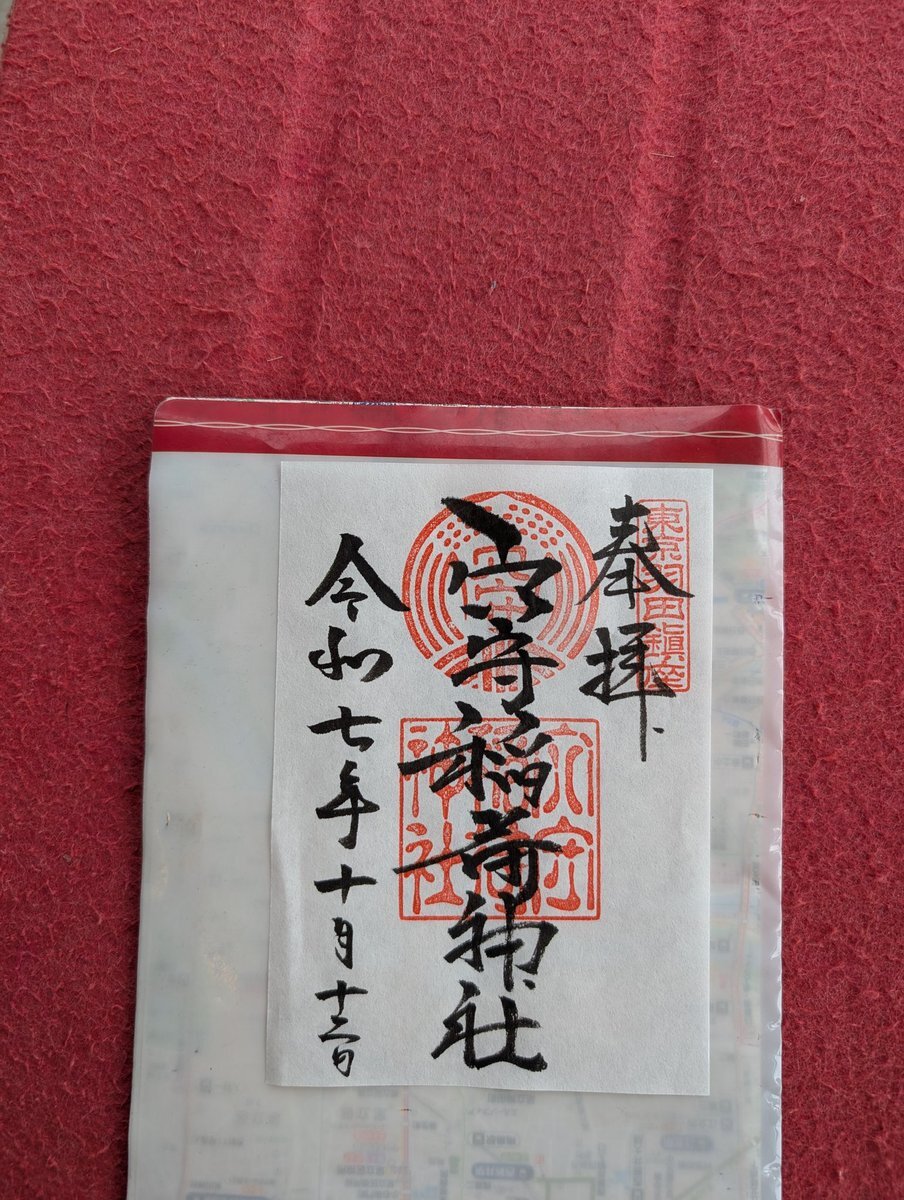 奉拝
東京羽田鎮座
穴守稲荷神社
穴守
稲荷
神社
令和七年十月十三日